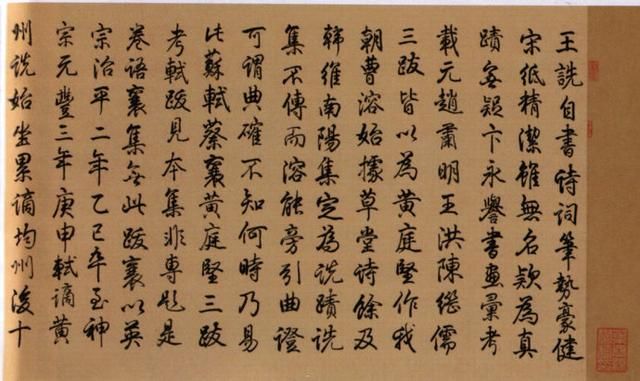 王詵自書诗词筆势豪健
宋纸精潔雖無名款为真
蹟無疑卞永譽書画彙考
載元趙肅明王洪陳继儒
三跋皆以為黄庭堅作我
朝曹溶始據草堂诗餘及
韩维南陽集定为詵蹟詵
集不傳而溶能旁引曲證
可谓典確不知何時乃易
此蘇軾蔡襄黄庭堅三跋
考軾跋見本集非專題是
卷语襄集無此跋襄以英
宗治平二年乙巳卒至神
宗元豐三年庚申軾谪黄
州詵始坐累谪均州後十